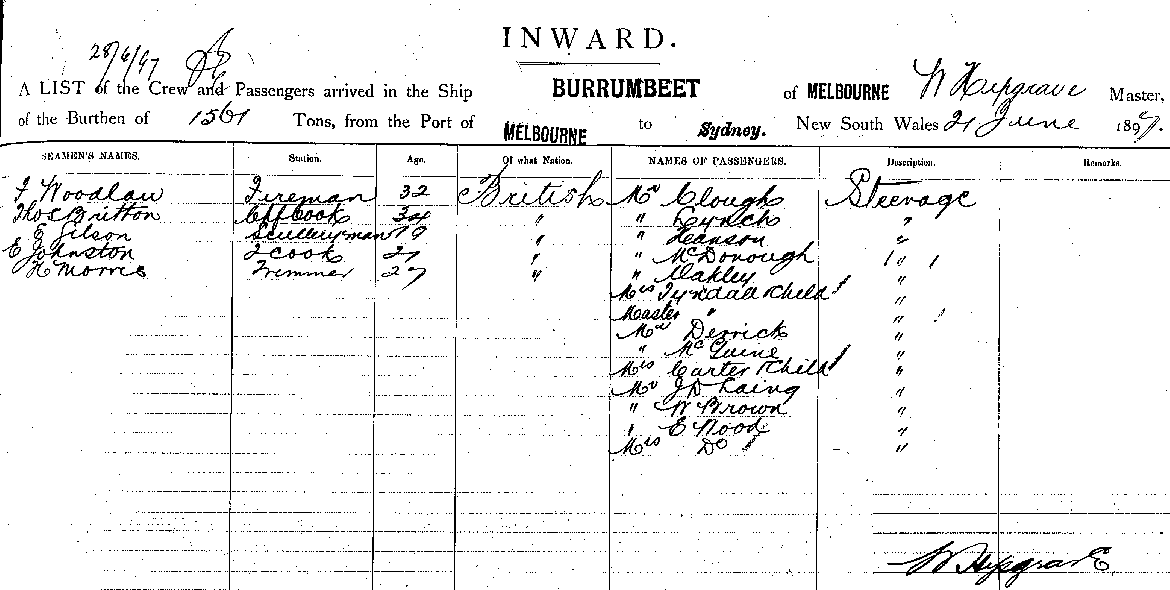 INWARD.
28/6/97
A LIST of the Crew and Passengers arrived in the Ship BURRUMBEET of MELBOURNE W Hipgrave Master,
of the Burthen of 1561 Tons, from the Port of MELBOURNE to Sydney. New South Wales 21 June 1897.
SEAMEN'S NAMES. Station. Age. Of what Nation. NAMES OF PASSENGERS. Description. Remarks.
F Woodlau Fireman 32 British Mr Clough Steerage
Thos Britton Cook 34 " " Lynch "
E Gilson Sculleryman 19 " " Hanson "
E Johnston 2 Cook 27 " " McDonough "
H Morris Trimmer 27 " " Oakley "
Mrs Tyndall & Child "
Master " "
Mr Derrick "
" McGuine "
Mrs Carter & Child "
Mr J D Laing "
" W Brown "
" E Wood "
Mrs Do "
W Hipgrave